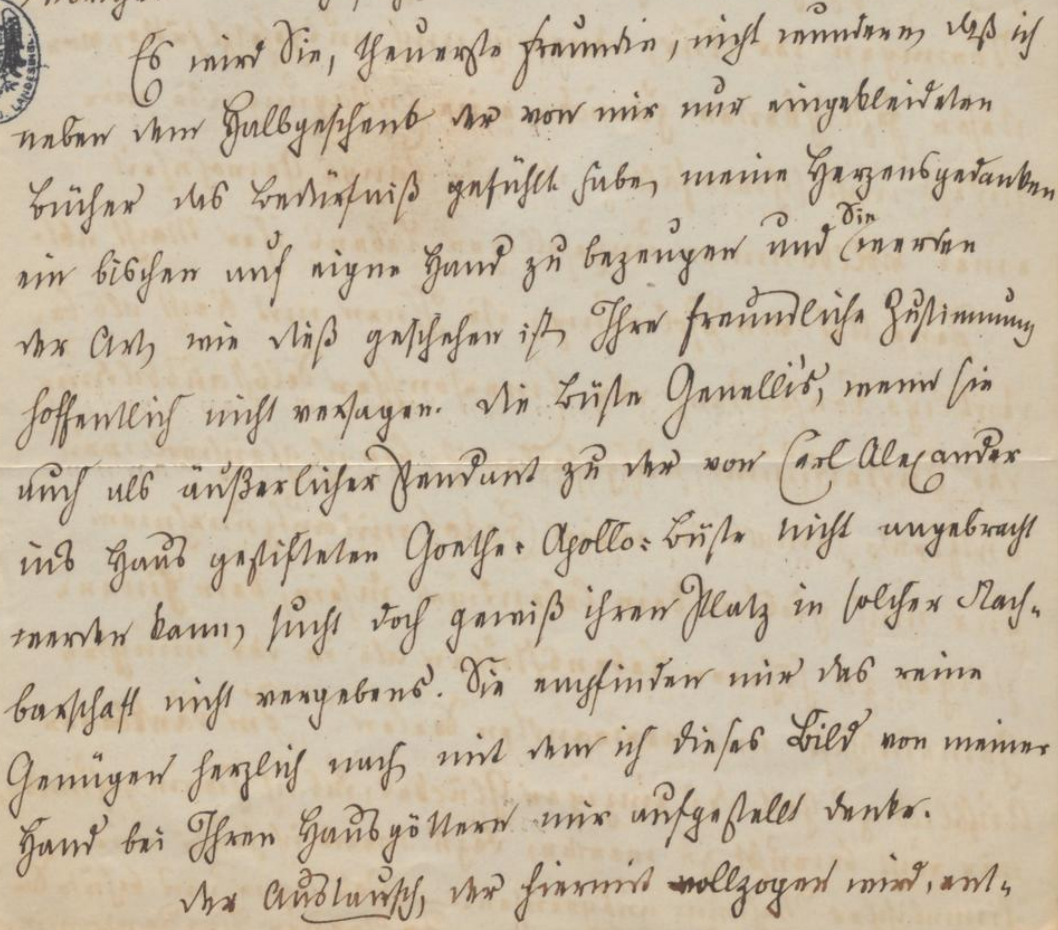 Es wird Sie, theuerste Freundin, nicht wundern, daß ich
neben dem Halbgeschenk der von mir nur eingekleideten
Bücher das Bedürfniß gefühlt habe, meine Herzensgedanken
ein bischen auf eigne Hand zu bezeugen und Sie werden
der Art, wie dieß geschehen ist, Ihre freundliche Zustimmung
hoffentlich nicht versagen. Die Büste Genelli's, wenn sie
auch als äußerlicher Pendant zu der von Carl Alexander
ins Haus gestifteten Goethe-Apollo-Büste nicht angebracht
werden kann, sucht doch gewiß ihren Platz in solcher Nach-
barschaft nicht vergebens. Sie empfinden mir das reine
Genügen herzlich nach, mit dem ich dieses Bild von meiner
Hand bei Ihren Hausgöttern mir aufgestellt denke.
Der Austausch, der hiermit vollzogen wird, ent-